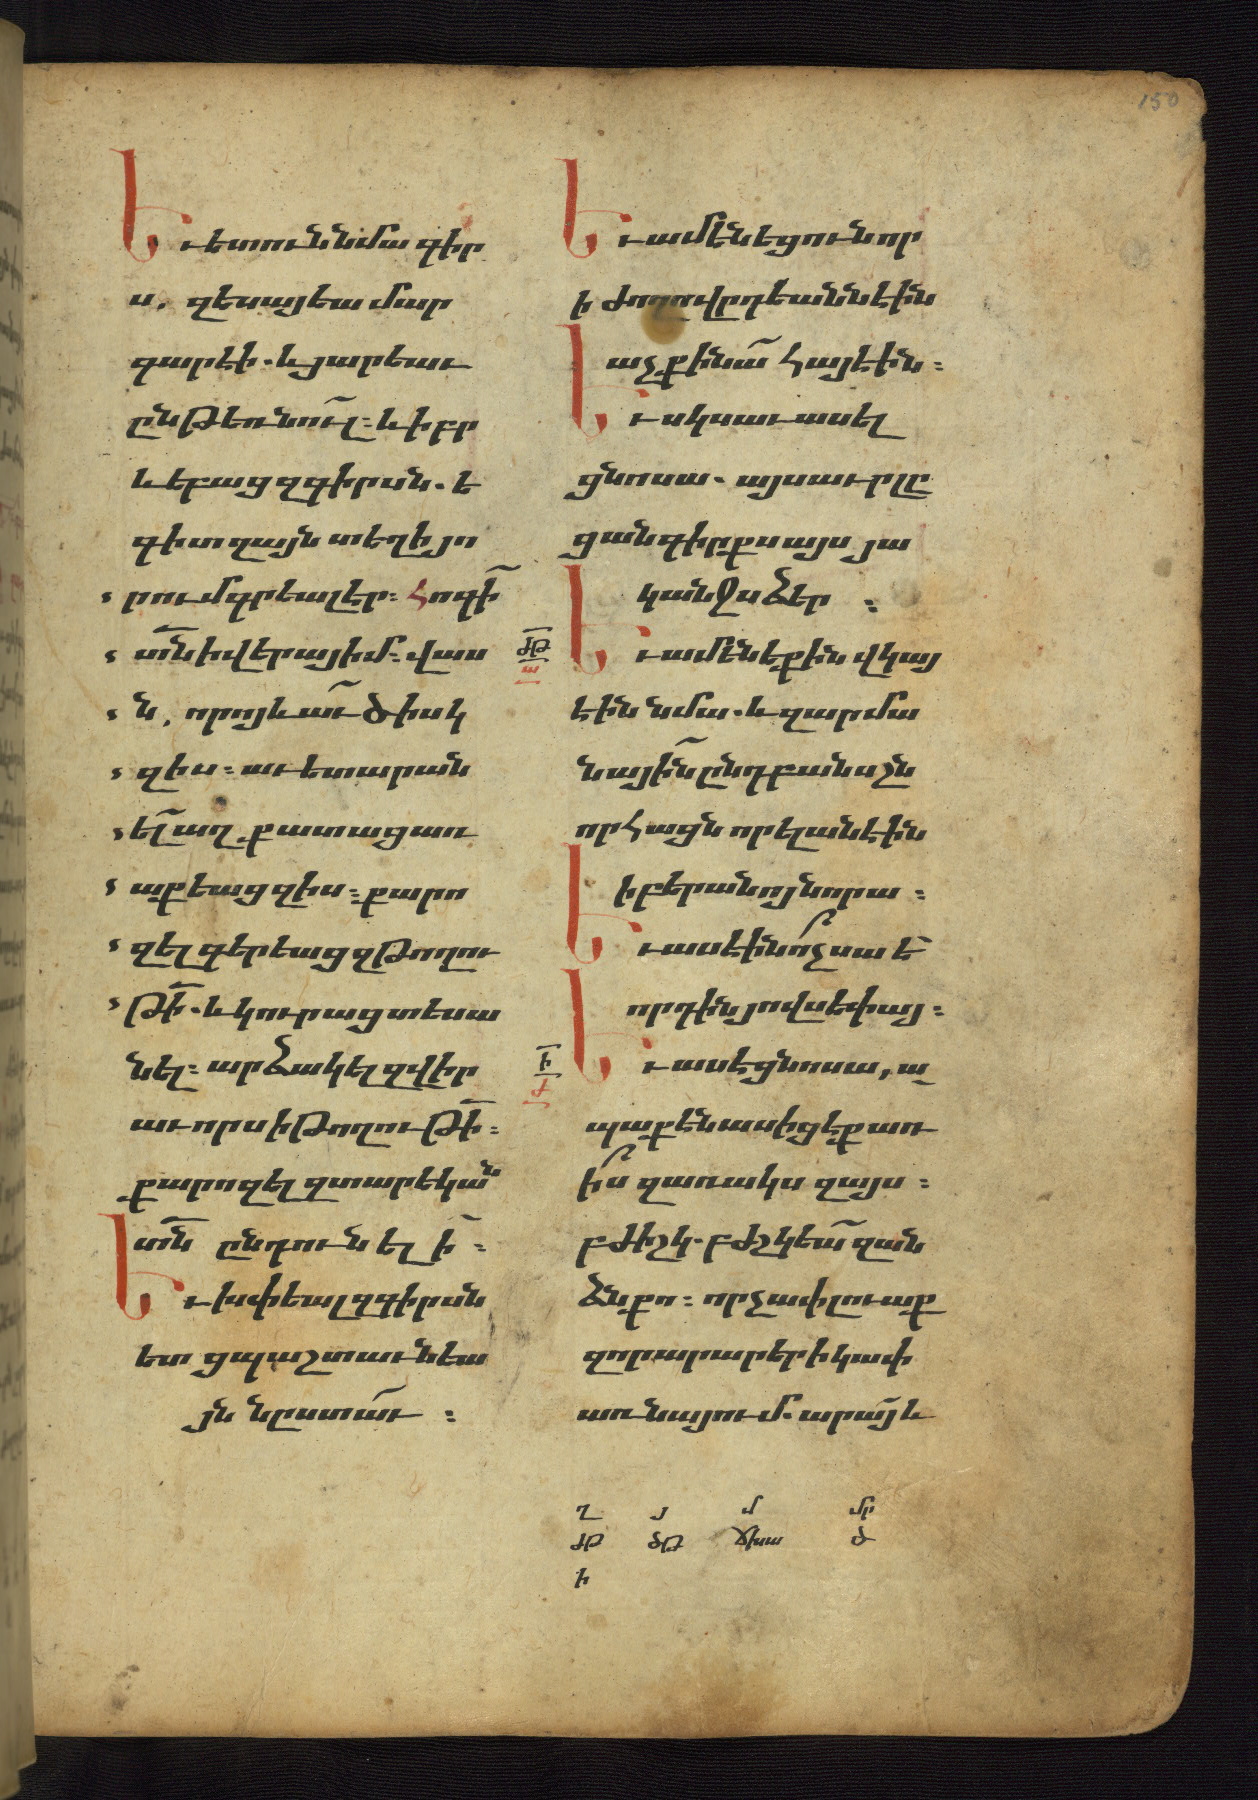 150
Եւ ետուն նմա գիր
ս, զեսայեա մար
գարէի. և յարեաւ
ընթեռնուլ։ և իբր
և եբաց զգիրսն. ե
գիտ զայն տեղի յո
րում գրեալ էր։ Հոգի՜
տ՜ն ի վերայ իմ։ վաս
ն, որոյ և աւ՜ծ իսկ
զիս։ աւետարան
ել՜ աղքատաց առ
աքեաց զիս։ քարո
զել գերեաց զթողու
թի՜. և կուրաց տեսա
նել։ արձակել զվիր
աւորս ի թողութի՜։
քարոզել զտարեկա՜ն
տ՜ն ընդունել ի՜։
Եւ խփեալ զգիրսն
ետ ցպաշտաւնեա
յն նըստա՜ւ։
Եւ ամենեցուն որ
ի ժողովըդեանն էին
աչք ի նա՜ հայէին։
Եւ սկսաւ ասել
ցնոսա. այսաւր լը
ցան գիրքս այս յա
կանջս ձեր։
ԺԹ
Ա
Եւ ամենեքին վկայ
էին նմա. և զարմա
նայի՜ն ընդ բանս շն
որհացն որ ելանէին
ի բերանոյ նորա։
Եւ ասէին ո՞չ սա է
որդին յովսեփայ։
Ի
Ժ
Եւ ասէ ցնոսա, ա
պաքէն ասիցէք առ
ի՜ս զառակս զայս։
բժիշկ. բժշկեա՜ զան
ձն քո։ որչափ լուաք
զոր արարեր ի կափ
առնայում. արա՜ և
Ղ Յ Մ ՄՐ
ԺԹ ԾԹ ՃԻԱ Ծ
Ի